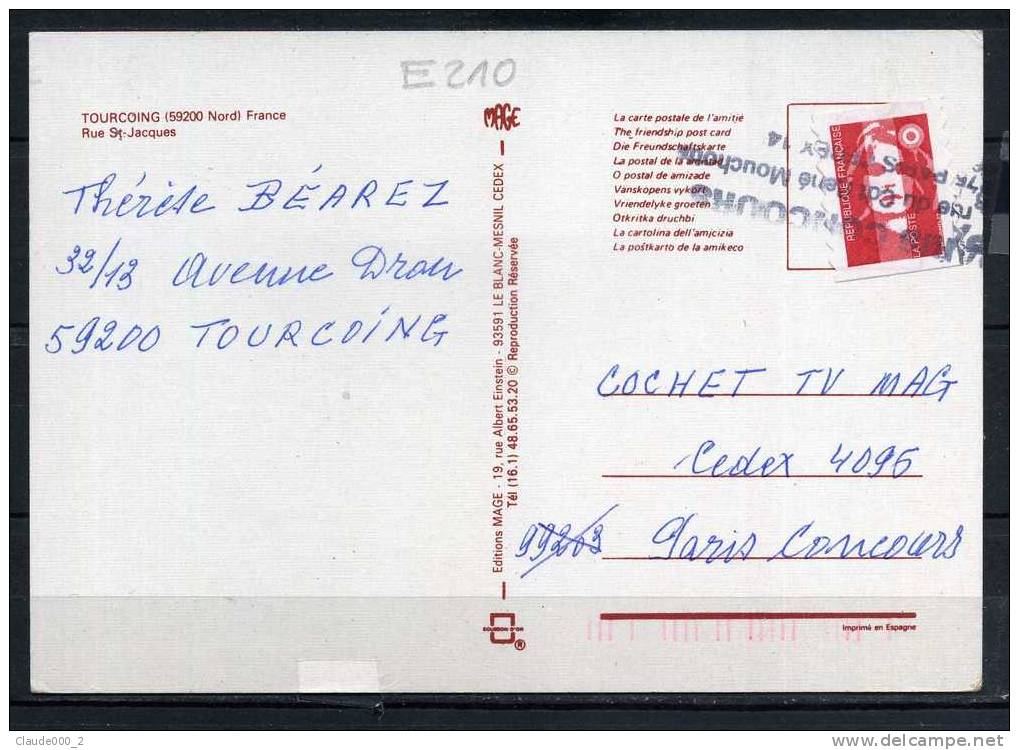 E210
TOURCOING (59200 Nord) France
Rue St-Jacques
Thérèse BÉAREZ
32/13 Avenue Dron
59200 TOURCOING
MAGE
Editions MAGE - 19, rue Albert Einstein - 93591 LE BLANC-MESNIL CEDEX
Tél (16.1) 48.65.53.20 © Reproduction Réservée
ECUSSON D'OR
®
La carte postale de l'amitié
The friendship post card
Die Freundschaftskarte
La postal de la amistad
O postal de amizade
Vanskopens vykort
Vriendelyke groeten
Otkritka druchbi
La cartolina dell'amjcizia
La poŝtkarto de la amikeco
CONCOURS
René Mouchotte
PARIS
REPUBLIQUE FRANÇAISE
LA POSTE
COCHET TV MAG
Cedex 4095
99203 Paris Concours
Imprimé en Espagne
Claude000_2
www.delcampe.net